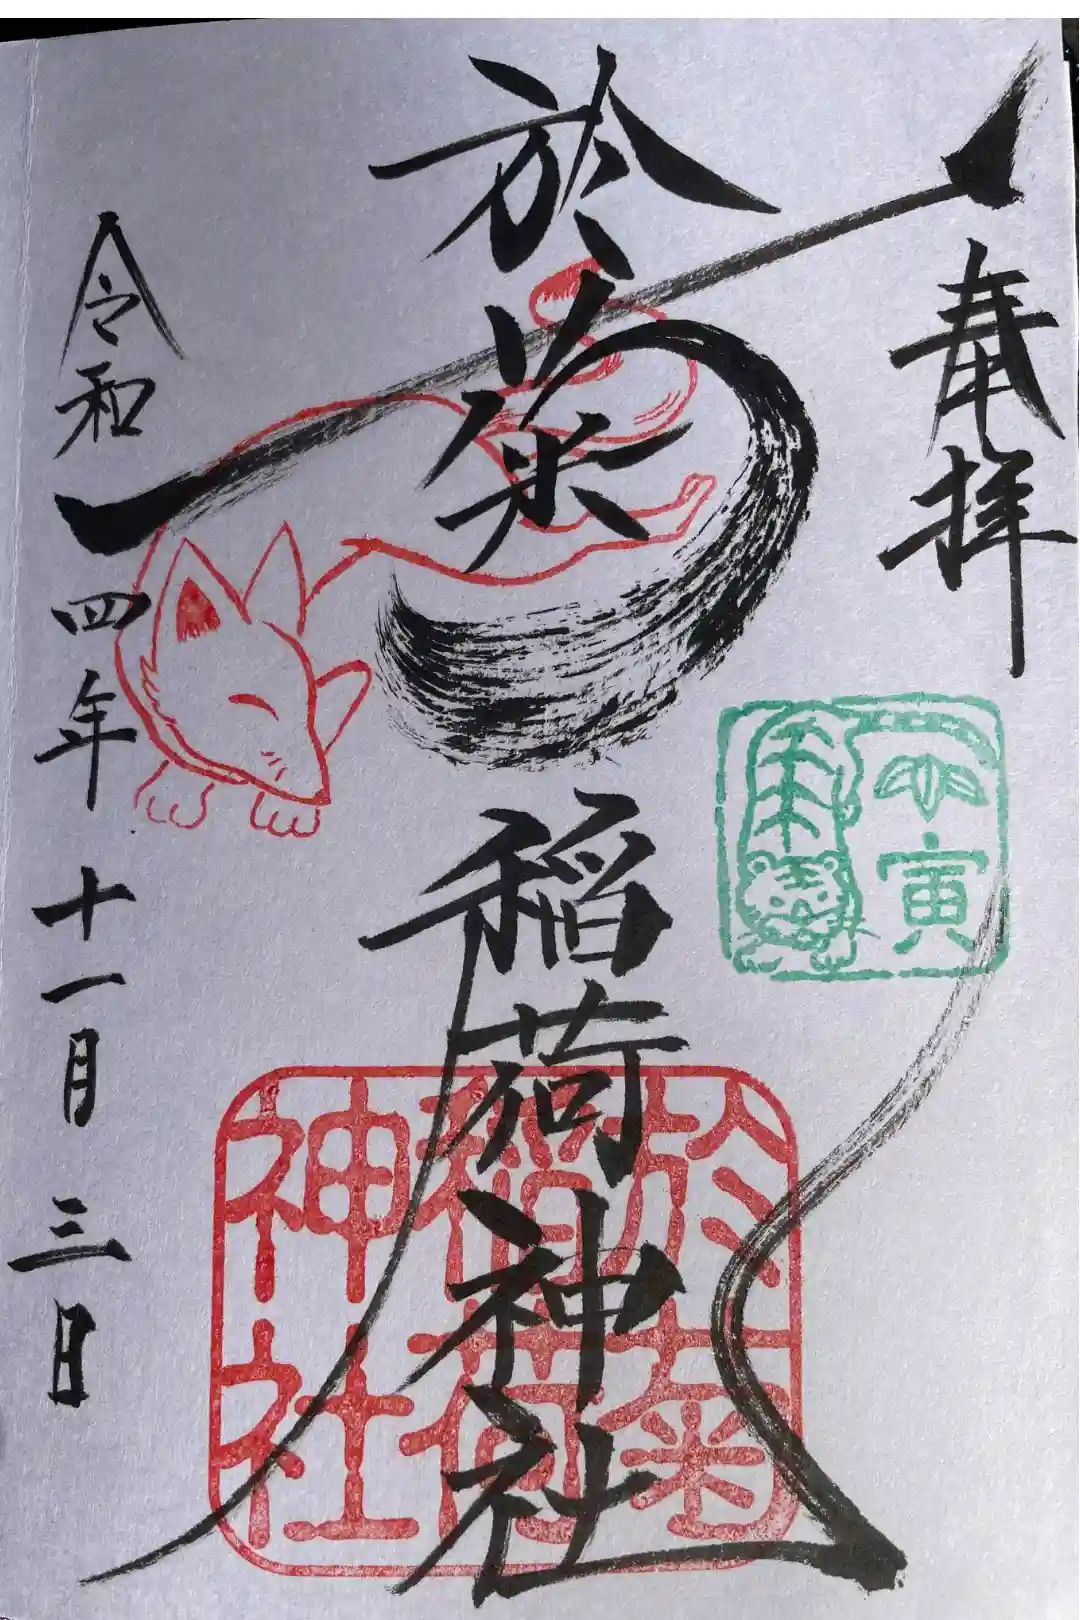 奉拝
於菊稲荷神社
令和四年十一月三日
寅
於菊
稲荷
神社